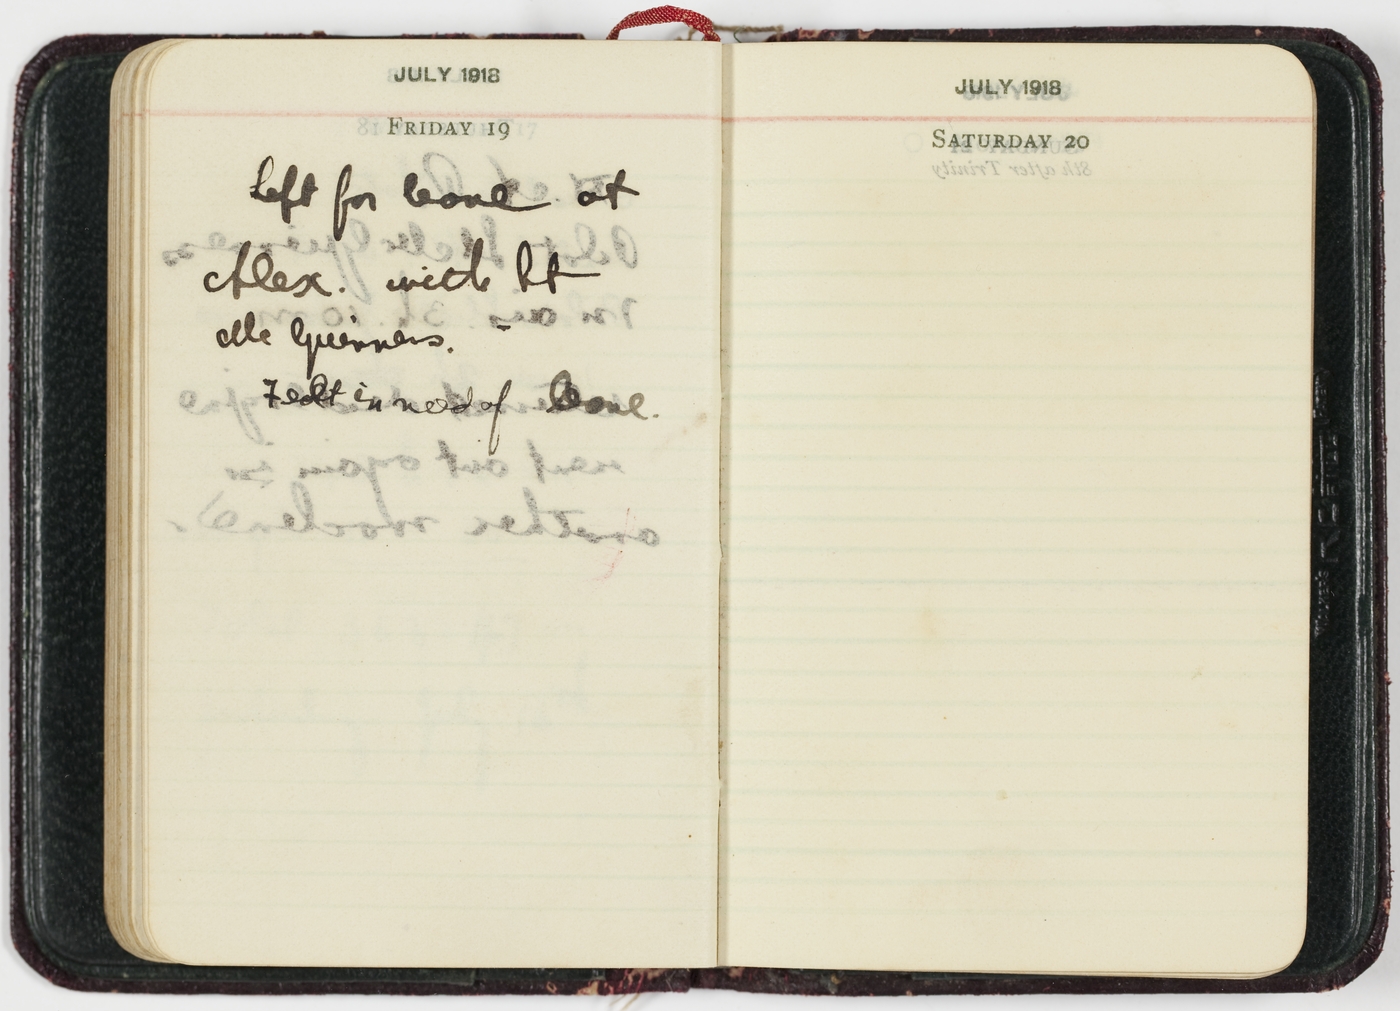 JULY 1918
FRIDAY 19
Left for leave at
Alex. with Lt
Mc Guinness. -
Felt in need of leave.
JULY 1918
SATURDAY 20